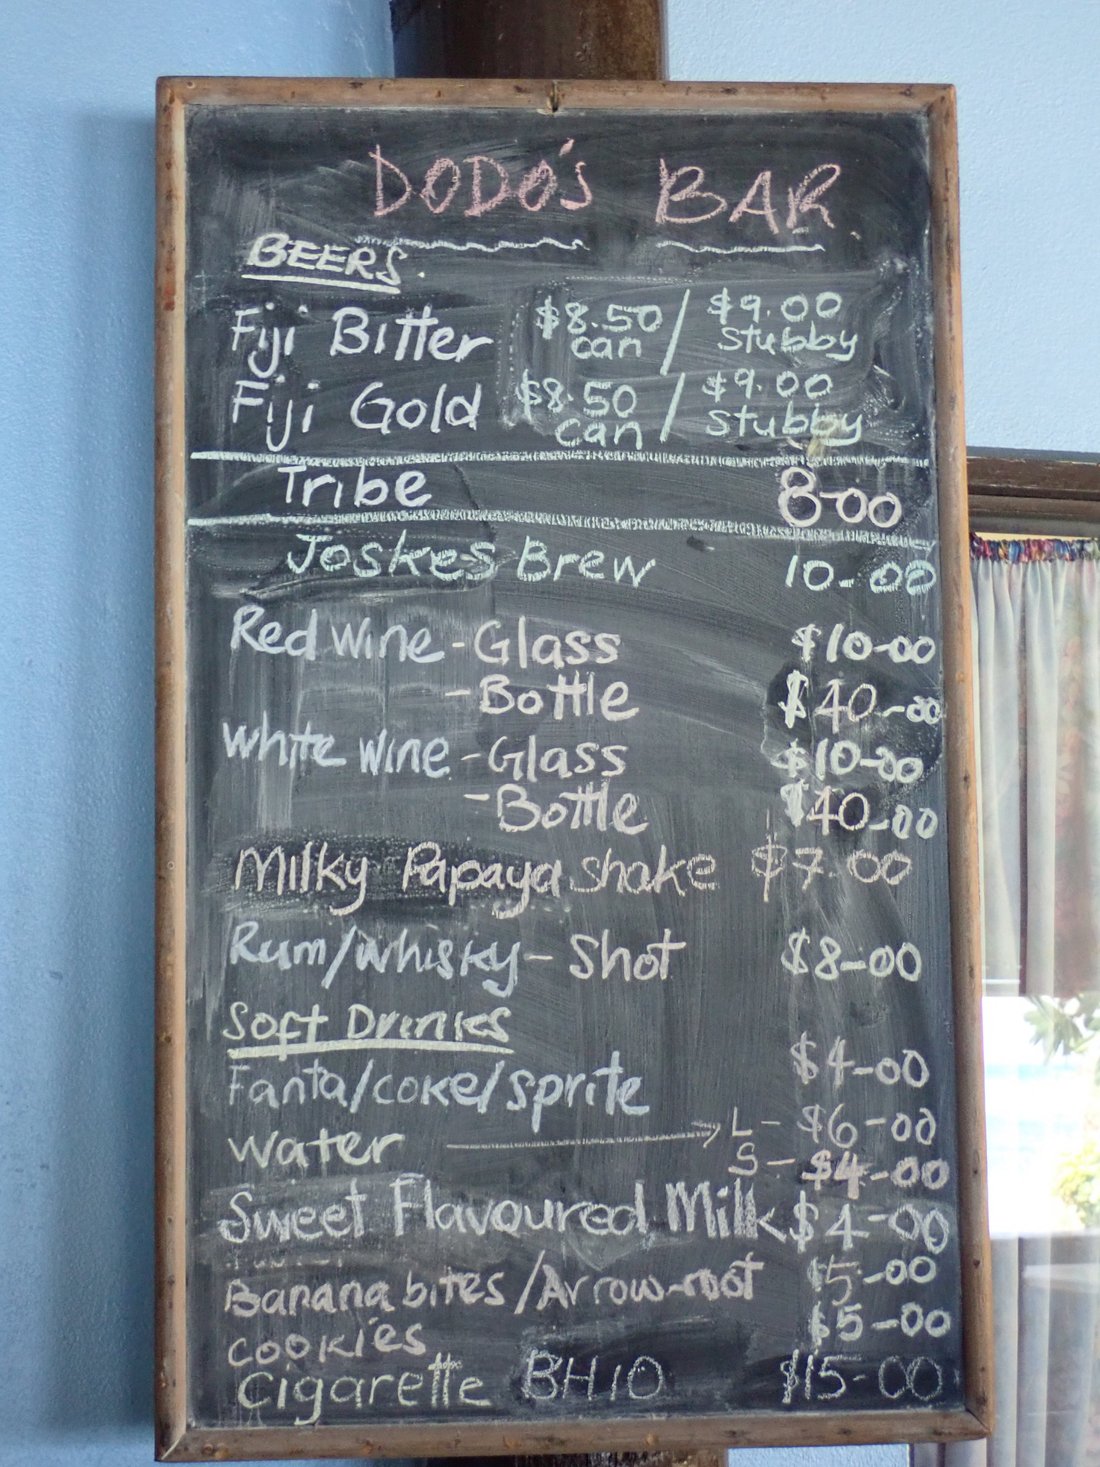 DODO'S BAR
BEERS
Fiji Bitter $8.50 can / $9.00 stubby
Fiji Gold $8.50 can / $9.00 stubby
Tribe 8-00
Joskes Brew 10-00
Red Wine - Glass $10-00
- Bottle $40-00
White Wine - Glass $10-00
- Bottle $40-00
Milky Papaya shake $7.00
Rum/Whisky - Shot $8-00
Soft Drinks
Fanta/coke/sprite $4-00
Water → L - $6-00
S - $4-00
Sweet Flavoured Milk $4-00
Banana bites/Arrow-root $5-00
cookies $5-00
Cigarette BH10 $15-00